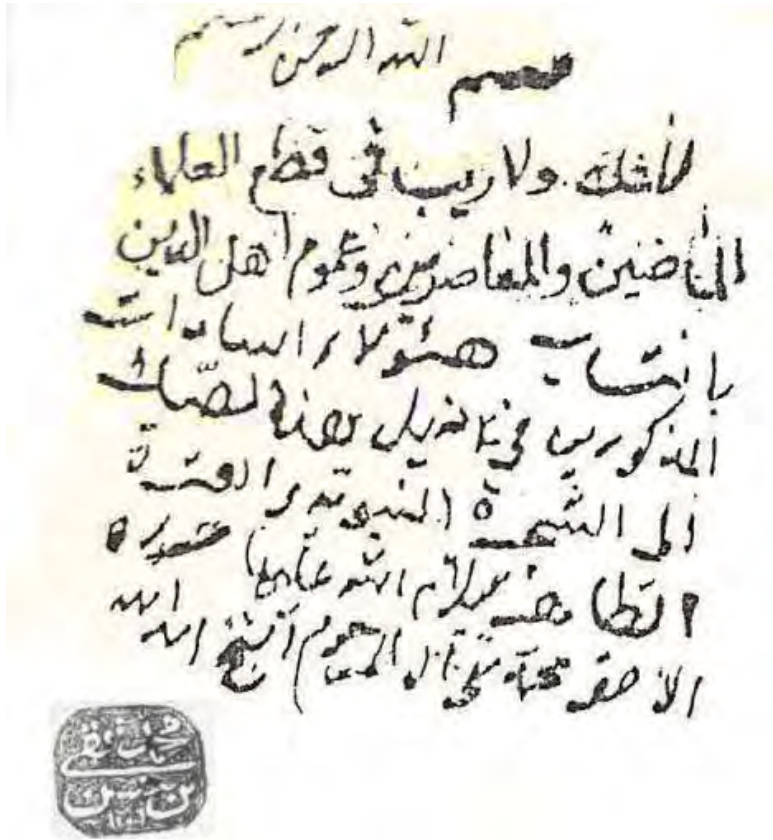 بسم الله الرحمن الرحيم
لا شك ولا ريب في قطع العلماء
الماضين والمعاصرين وعموم اهل الدين
بانتساب هئولاء السادات
المذكورين في تذييل بهذه الصّك
الى الشجرة النبوية و العترة
الطاهرة سلام الله عليها حرره
الاحقر محمد تقي المرحوم الشيخ اسد الله
محمد تقي
بن حسن